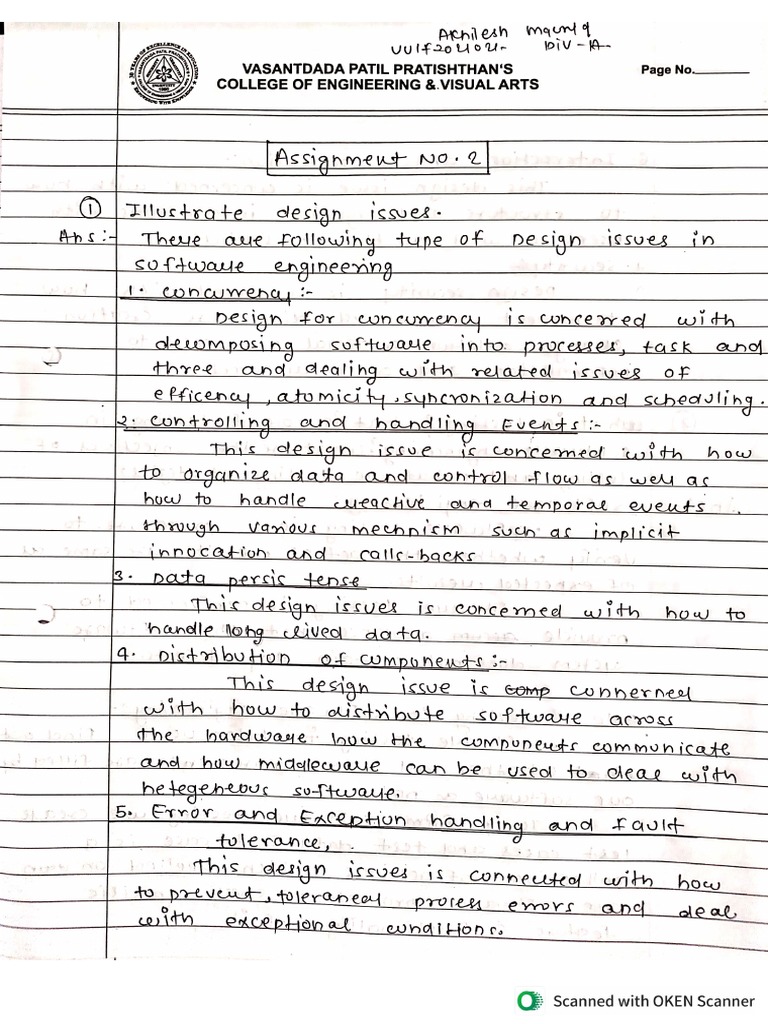 Akhilesh
DIV-A
VASANTDADA PATIL PRATISHTHAN'S
COLLEGE OF ENGINEERING & VISUAL ARTS
Page No.
Assignment No. 2
① Illustrate design issues.
Ans :- There are following type of Design issues in
software engineering
1. Concurrency :-
Design for concurrency is concerred with
decomposing software into processes, task and
three and dealing with related issues of
efficency, atomicity, syncronization and scheduling.
2. Controlling and handling Events :-
This design issue is concerned with how
to organize data and control flow as well as
how to handle reactive and temporal events
through various mechnism such as implicit
innocation and calls-backs
3. Data persis tense
This design issues is concerned with how to
handle long lived data.
4. Distribution of components :-
This design issue is comp connerned
with how to distribute software across
the hardware how the components communicate
and how middleware can be used to deal with
hetegeneous software.
5. Error and Exception handling and fault
tolerance,
This design issues is connected with how
to prevent, toleraneal process errors and deal
with exceptional conditions.
Scanned with OKEN Scanner